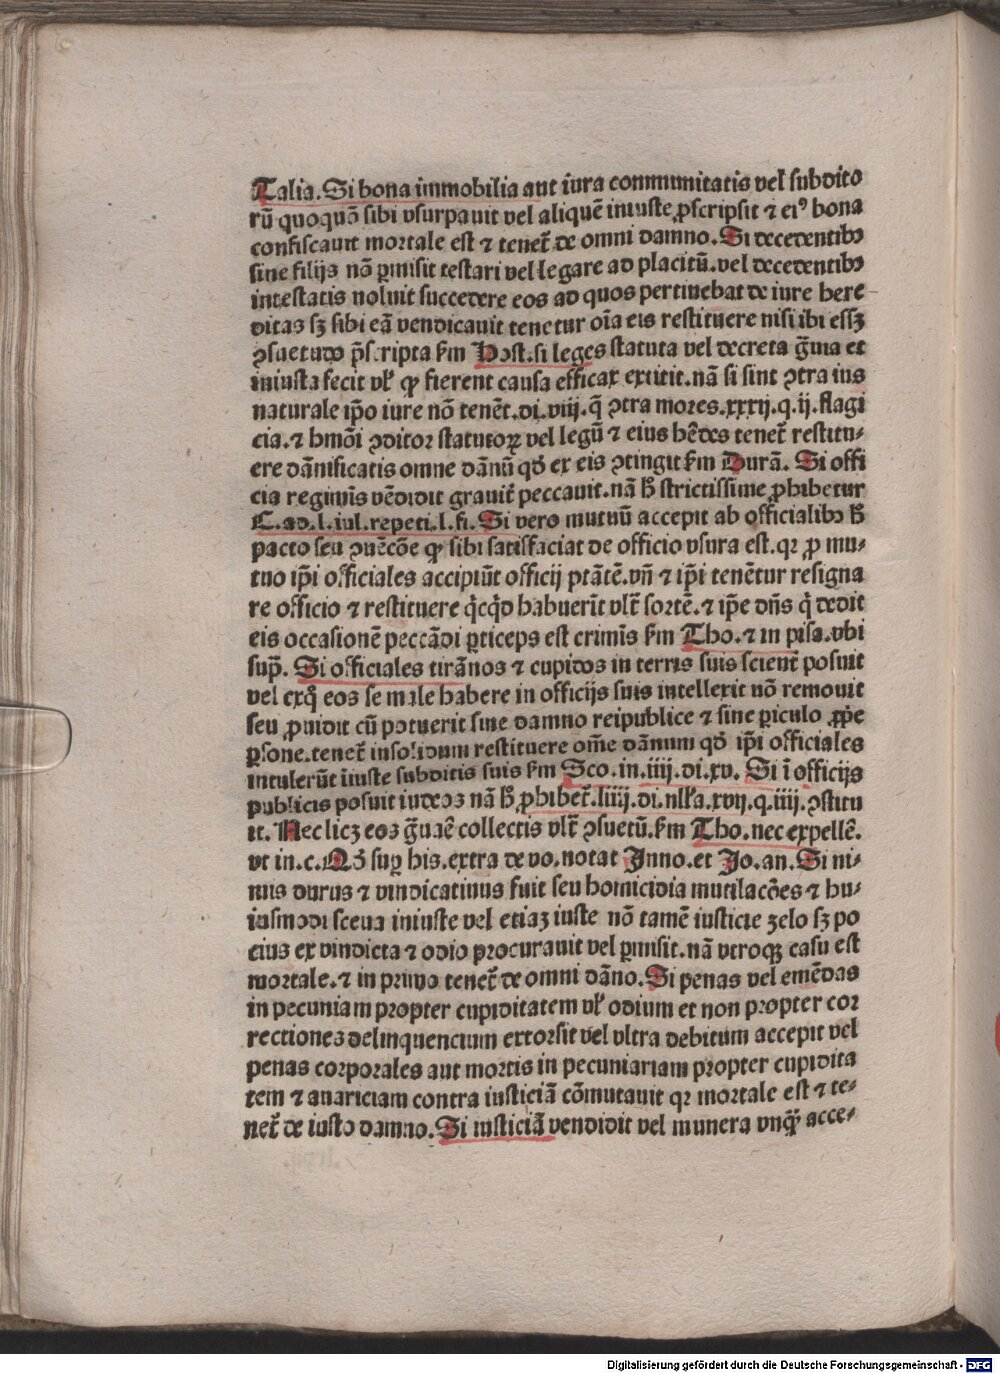 Talia. Si bona immobilia aut iura communitatis vel subdito
rū quoquō sibi vsurpauit vel aliquē iniuste ꝓscripsit ⁊ eiꝰ bona
confiscauit mortale est ⁊ tenet̄ de omni damno. Si decedentibꝫ
sine filijs nō ꝑmisit testari vel legare ad placitū. vel decedentibꝫ
intestatis noluit succedere eos ad quos pertinebat de iure here
ditas sꝫ sibi eā vendicauit tenetur oīa eis restituere nisi ibi essꝫ
ꝯsuetudo p̄scripta ẜm Host. si leges statuta vel decreta g̈uia et
iniusta fecit vl̕ ꝙ fierent causa efficax extitit. nā si sint ꝯtra ius
naturale ip̄o iure nō tenēt. di. viij. q̄ ꝯtra mores. xxxij. q. ij. flagi
cia. ⁊ hmōi ꝯditor statutoꝝ vel legū ⁊ eius hēdes tenet̄ restitu-
ere dānificatis omne dānū qd̕ ex eis ꝯtingit ẜm Durā. Si offi
cia regimīs vēdidit grauit̄ peccauit. nā h̄ strictissime ꝓhibetur
C. ad. l. iul. repeti. l. fi. Si vero mutuū accepit ab officialibꝫ h̄
pacto seu ꝯuēcōe ꝙ sibi satisfaciat de officio vsura est. qꝛ ꝓ mu-
tuo ip̄i officiales accipiūt officij ptātē. vn̄ ⁊ ip̄i tenētur resigna
re officio ⁊ restituere q̇cq̇d habuerīt vlt̄ sortē. ⁊ ip̄e dn̄s q̇ dedit
eis occasionē peccādi ꝑticeps est crimīs ẜm Tho. ⁊ in pisa. vbi
sup̄. Si officiales tirānos ⁊ cupidos in terris suis scient̄ posuit
vel exq̇ eos se male habere in officijs suis intellexit nō remouit
seu ꝓuidit cū potuerit sine damno reipublice ⁊ sine ꝑiculo ꝓp̄e
ꝑsone. tenet̄ insolidum restituere om̄e dānum qd̕ ip̄i officiales
intulerūt iīuste subditis suis ẜm Sco. in. iiij. di. xv. Si ī officijs
publicis posuit iudeos nā h̄ ꝓhibet̄. liiij. di. nl̕l̕a. xvij. q. iiij. ꝯstitu
it. Nec licꝫ eos g̈uaē collectis vlt̄ ꝯsuetū. ẜm Tho. nec expellē.
vt in. c. Qd̕ suꝑ his. extra de vo. notat Inno. et Jo. an. Si ni-
mis durus ⁊ vindicatiuus fuit seu homicidia mutilacōes ⁊ hu-
iusmodi sceua iniuste vel etiaꝫ iuste nō tamē iusticie zelo sꝫ po
cius ex vindicta ⁊ odio procurauit vel ꝑmisit. nā vtroqꝫ casu est
mortale. ⁊ in primo tenet̄ de omni dāno. Si penas vel emēdas
in pecuniam propter cupiditatem vl̕ odium et non propter cor
rectiones delinquencium extorsit vel vltra debitum accepit vel
penas corporales aut mortis in pecuniariam propter cupidita
tem ⁊ auariciam contra iusticiā cōmutauit qꝛ mortale est ⁊ te-
net̄ de iusto damno. Si iusticiā vendidit vel munera vnq̄ꝫ acce-
Digitalisierung gefördert durch die Deutsche Forschungsgemeinschaft - DFG